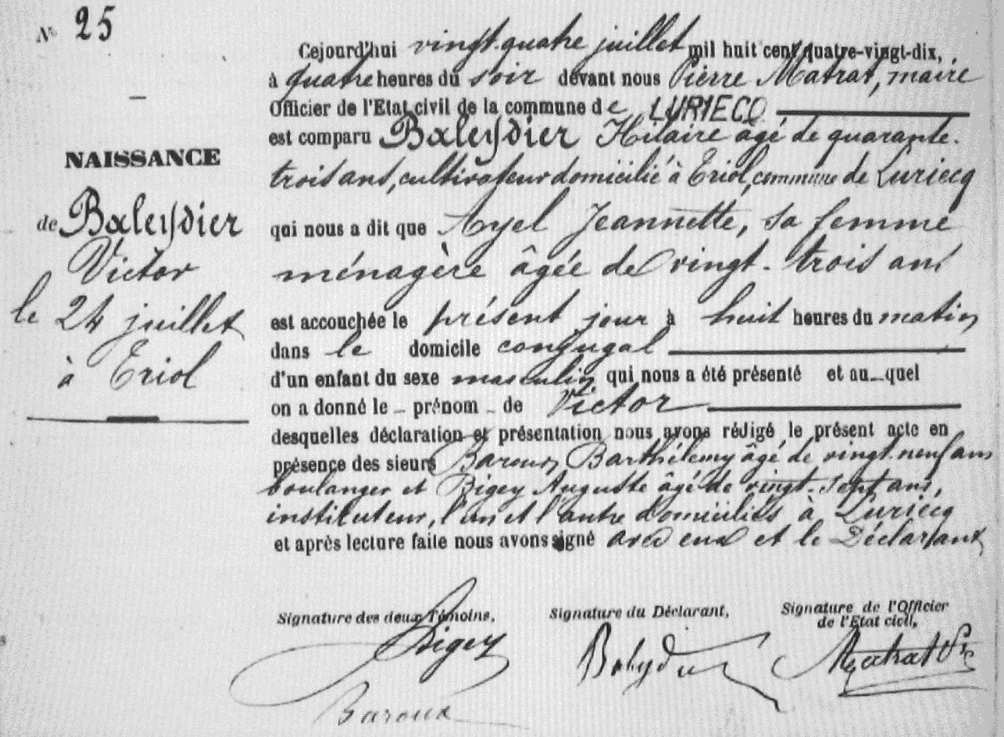 N° 25
NAISSANCE
de Baleydier
Victor
le 24 juillet
à Triol
Cejourd'hui vingt-quatre juillet mil huit cent quatre-vingt-dix,
à quatre heures du soir devant nous Pierre Matrat, maire
Officier de l'Etat civil de la commune de LURIECQ
est comparu Baleydier Hilaire âgé de quarante-
trois ans, cultivateur domicilié à Triol, commune de Luriecq
qui nous a dit que Ayel Jeannette, sa femme
ménagère âgée de vingt-trois ans
est accouchée le présent jour à huit heures du matin
dans le domicile conjugal
d'un enfant du sexe masculin qui nous a été présenté et au quel
on a donné le prénom de Victor
desquelles déclaration et présentation nous avons rédigé le présent acte en
présence des sieurs Baroux Barthélemy âgé de vingt-neuf ans
boulanger et Bigey Auguste âgé de vingt-sept ans,
instituteur, l'un et l'autre domiciliés à Luriecq
et après lecture faite nous avons signé avec eux et le Déclarant
Signature des deux Témoins,
Signature du Déclarant,
Signature de l'Officier
de l'Etat civil,
Bigey
Baleydier
Matrat Pre
Baroux